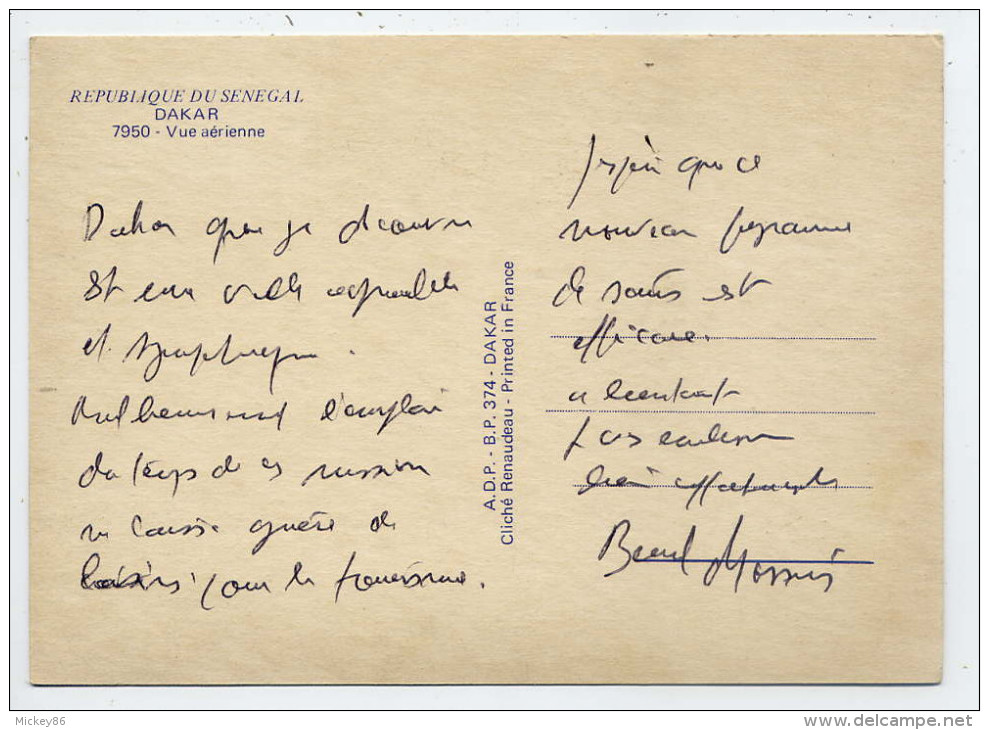 REPUBLIQUE DU SENEGAL
DAKAR
7950 - Vue aérienne
Dakar que je découvre
est une ville agréable
et sympathique.
Malheureusement l'emploi
du temps de ces mission
ne laisse guère de
loisirs pour le tourisme.
A.D.P. - B.P. 374 - DAKAR
Cliché Renaudeau - Printed in France
J'espère que ce
nouveau programme
de soins est
efficace.
bien affectueusement
Mickey86
delcampe.net